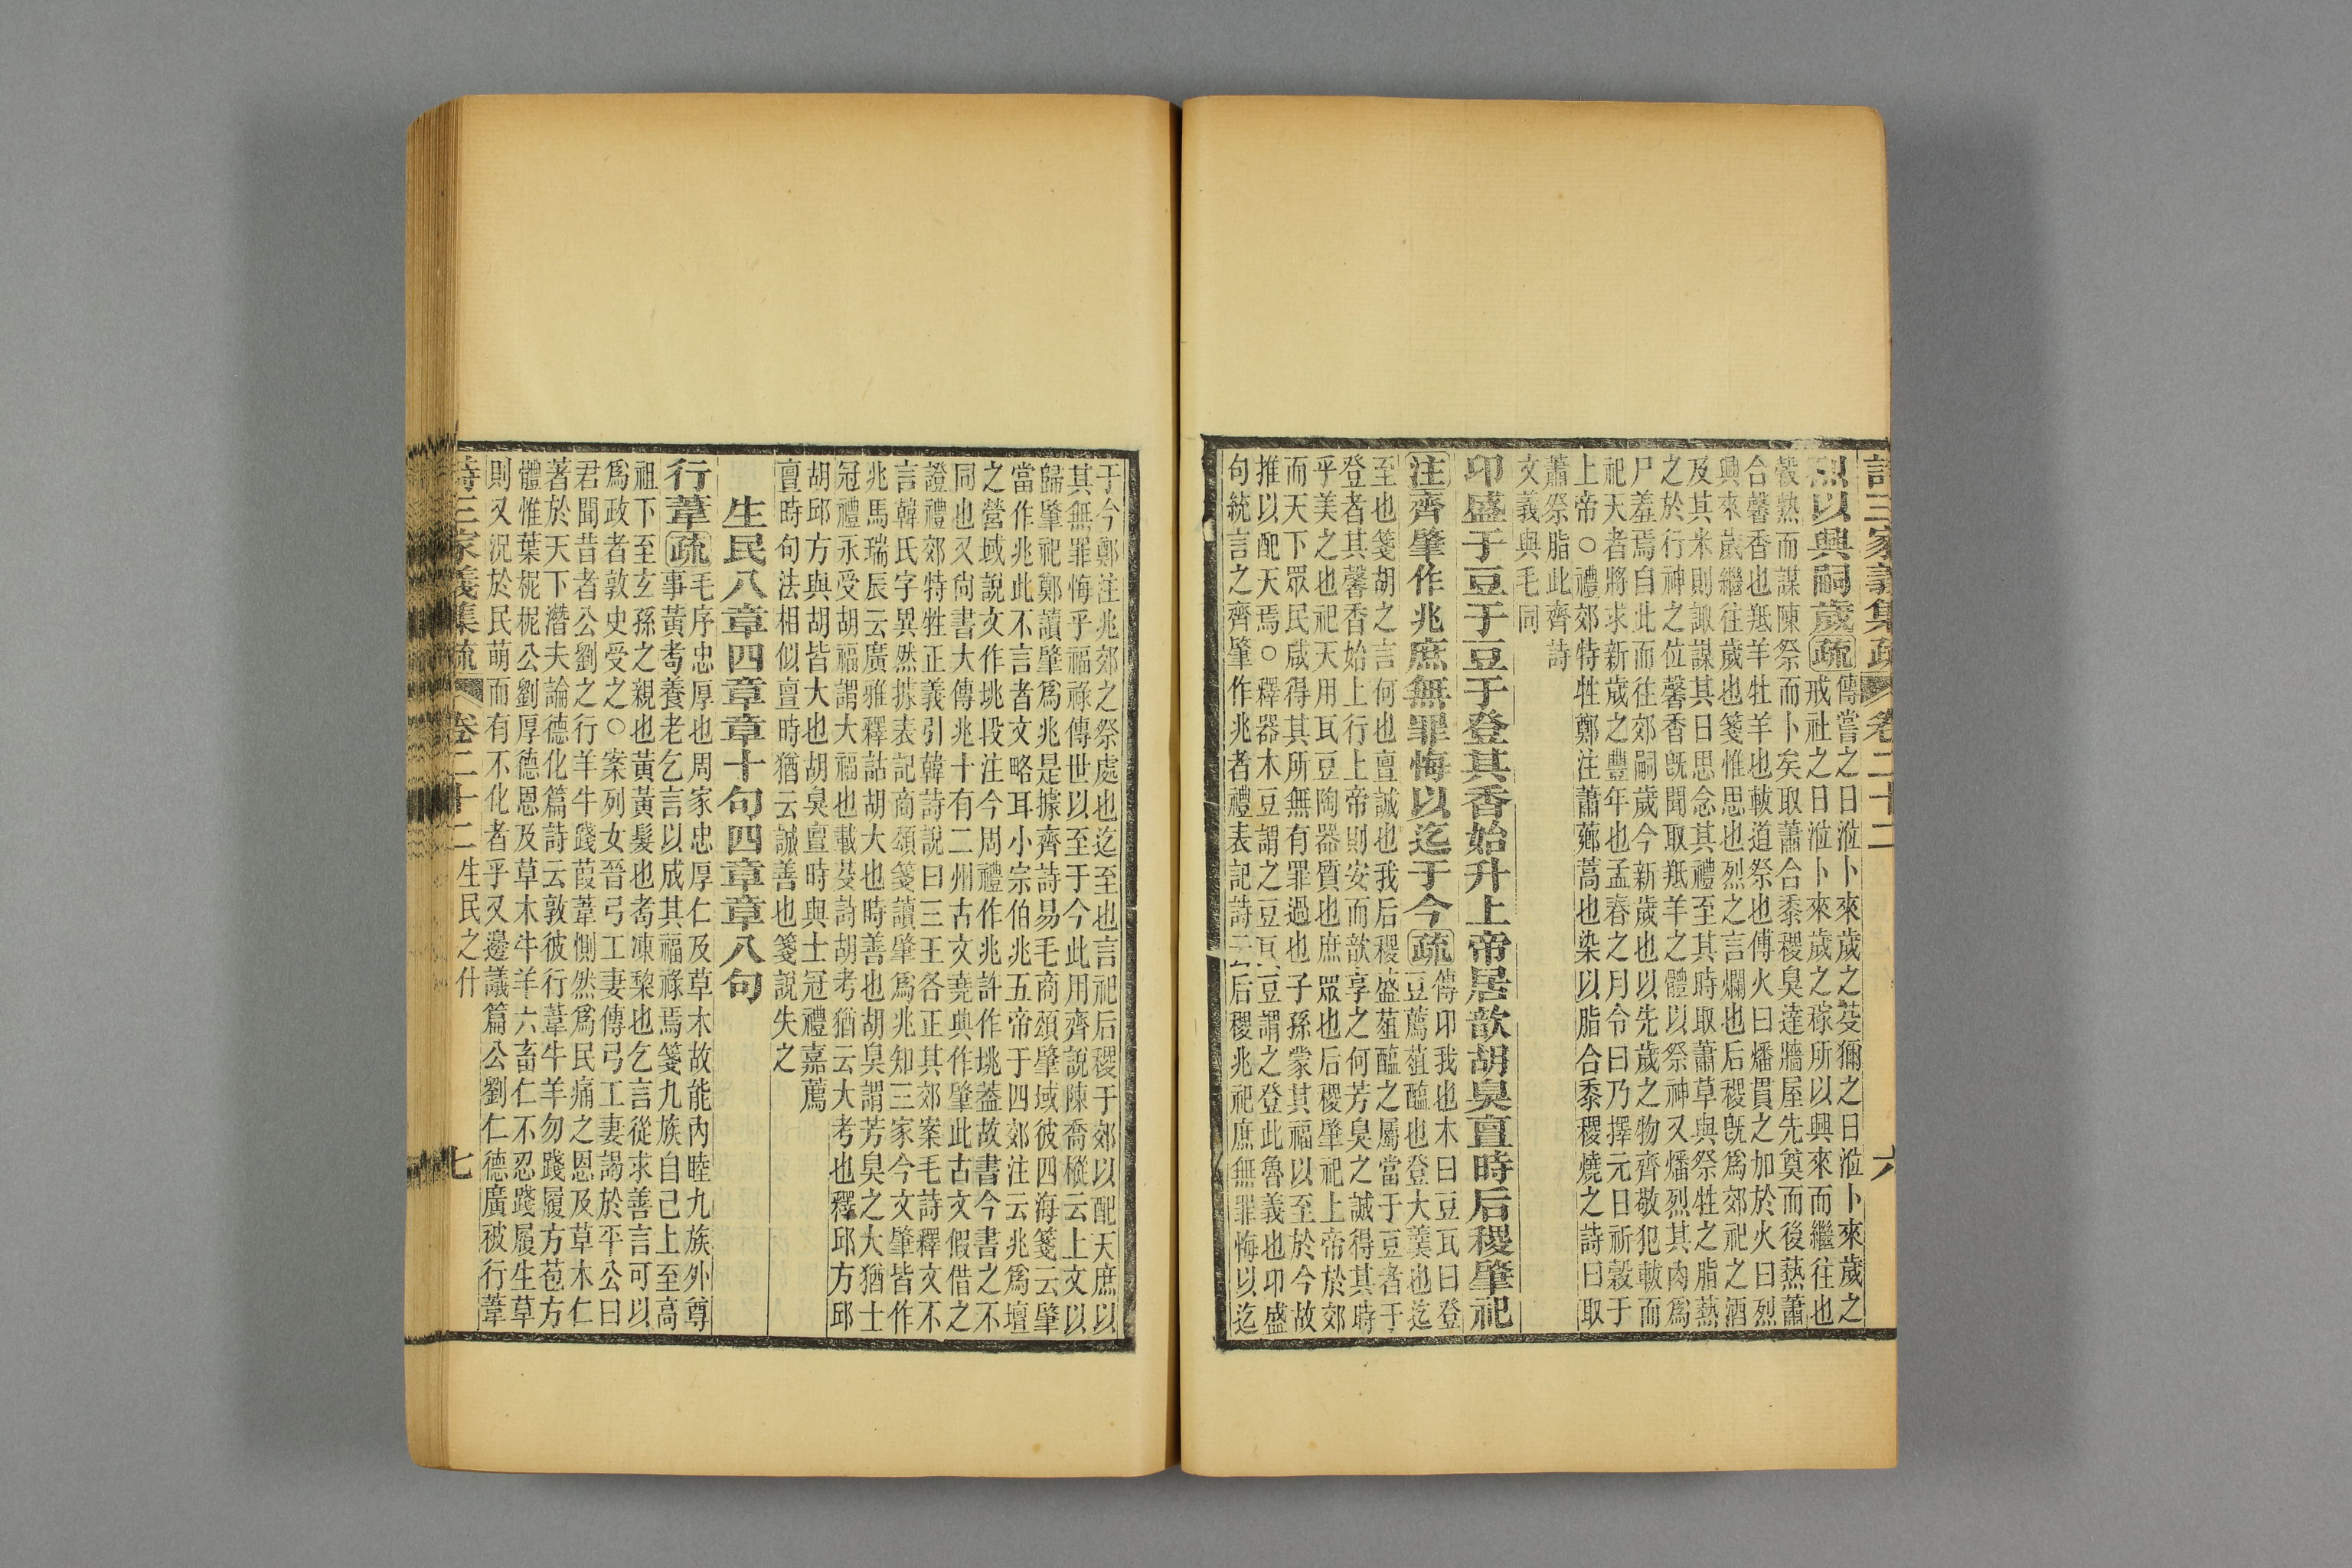 詩三家義集疏 卷二十二 六
烈以興嗣歲疏
傳嘗之日涖卜來歲之芟獮之日涖卜來歲之
戒社之日涖卜來歲之稼所以興來而繼往也
穀熟而謀陳祭而卜矣取蕭合黍稷臭達牆屋先奠而後爇蕭
合馨香也羝羊牡羊也軷道祭也傅火曰燔貫之加於火曰烈
興來歲繼往歲也箋惟思也烈之言爛也后稷旣爲郊祀之酒
及其米則諏謀其日思念其禮至其時取蕭草與祭牲之脂爇
之於行神之位馨香旣聞取羝羊之體以祭神又燔烈其肉爲
尸羞焉自此而往郊嗣歲今新歲也以先歲之物齊敬犯軷而
祀天者將求新歲之豐年也孟春之月令曰乃擇元日祈穀于
上帝○禮郊特牲鄭注蕭薌蒿也染以脂合黍稷燒之詩曰取
蕭祭脂此齊詩
文義與毛同
卬盛于豆于豆于登其香始升上帝居歆胡臭亶時后稷肇祀
注齊肇作兆庶無罪悔以迄于今疏
傳卬我也木曰豆瓦曰登
豆薦菹醢也登大羹也迄
至也箋胡之言何也亶誠也我后稷盛菹醢之屬當于豆者于
登者其馨香始上行上帝則安而歆享之何芳臭之誠得其時
乎美之也祀天用瓦豆陶器質也庶眾也后稷肇祀上帝於郊
而天下眾民咸得其所無有罪過也子孫蒙其福以至於今故
推以配天焉○釋器木豆謂之豆瓦豆謂之登此魯義也卬盛
句統言之齊肇作兆者禮表記詩云后稷兆祀庶無罪悔以迄
于今鄭注兆郊之祭處也迄至也言祀后稷于郊以配天庶以
其無罪悔乎福祿傳世以至于今此用齊說陳喬樅云上文以
歸肇祀鄭讀肇爲兆是據齊詩易毛商頌肇域彼四海箋云肇
當作兆此不言者文略耳小宗伯兆五帝于四郊注云兆爲壇
之營域說文作垗段注今周禮作兆許作垗蓋故書今書之不
同也又尙書大傳兆十有二州古文堯典作肇此古文假借之
證禮郊特牲正義引韓詩說曰三王各正其郊案毛詩釋文不
言韓氏字異然據表記商頌箋讀肇爲兆知三家今文肇皆作
兆馬瑞辰云廣雅釋詁胡大也時善也胡臭謂芳臭之大猶士
冠禮永受胡福謂大福也載芟詩胡考猶云大考也釋邱方邱
胡邱方與胡皆大也胡臭亶時與士冠禮嘉薦
亶時句法相似亶時猶云誠善也箋說失之
生民八章四章章十句四章章八句
行葦疏
毛序忠厚也周家忠厚仁及草木故能內睦九族外尊
事黃耇養老乞言以成其福祿焉箋九族自己上至高
祖下至玄孫之親也黃黃髮也耇凍棃也乞言從求善言可以
爲政者敦史受之○案列女晉弓工妻傳弓工妻謁於平公曰
君聞昔者公劉之行羊牛踐葭葦惻然爲民痛之恩及草木仁
著於天下潛夫論德化篇詩云敦彼行葦牛羊勿踐履方苞方
體惟葉柅柅公劉厚德恩及草木牛羊六畜仁不忍踐履生草
則又況於民萌而有不化者乎又邊議篇公劉仁德廣被行葦
詩三家義集疏 卷二十二 生民之什 七